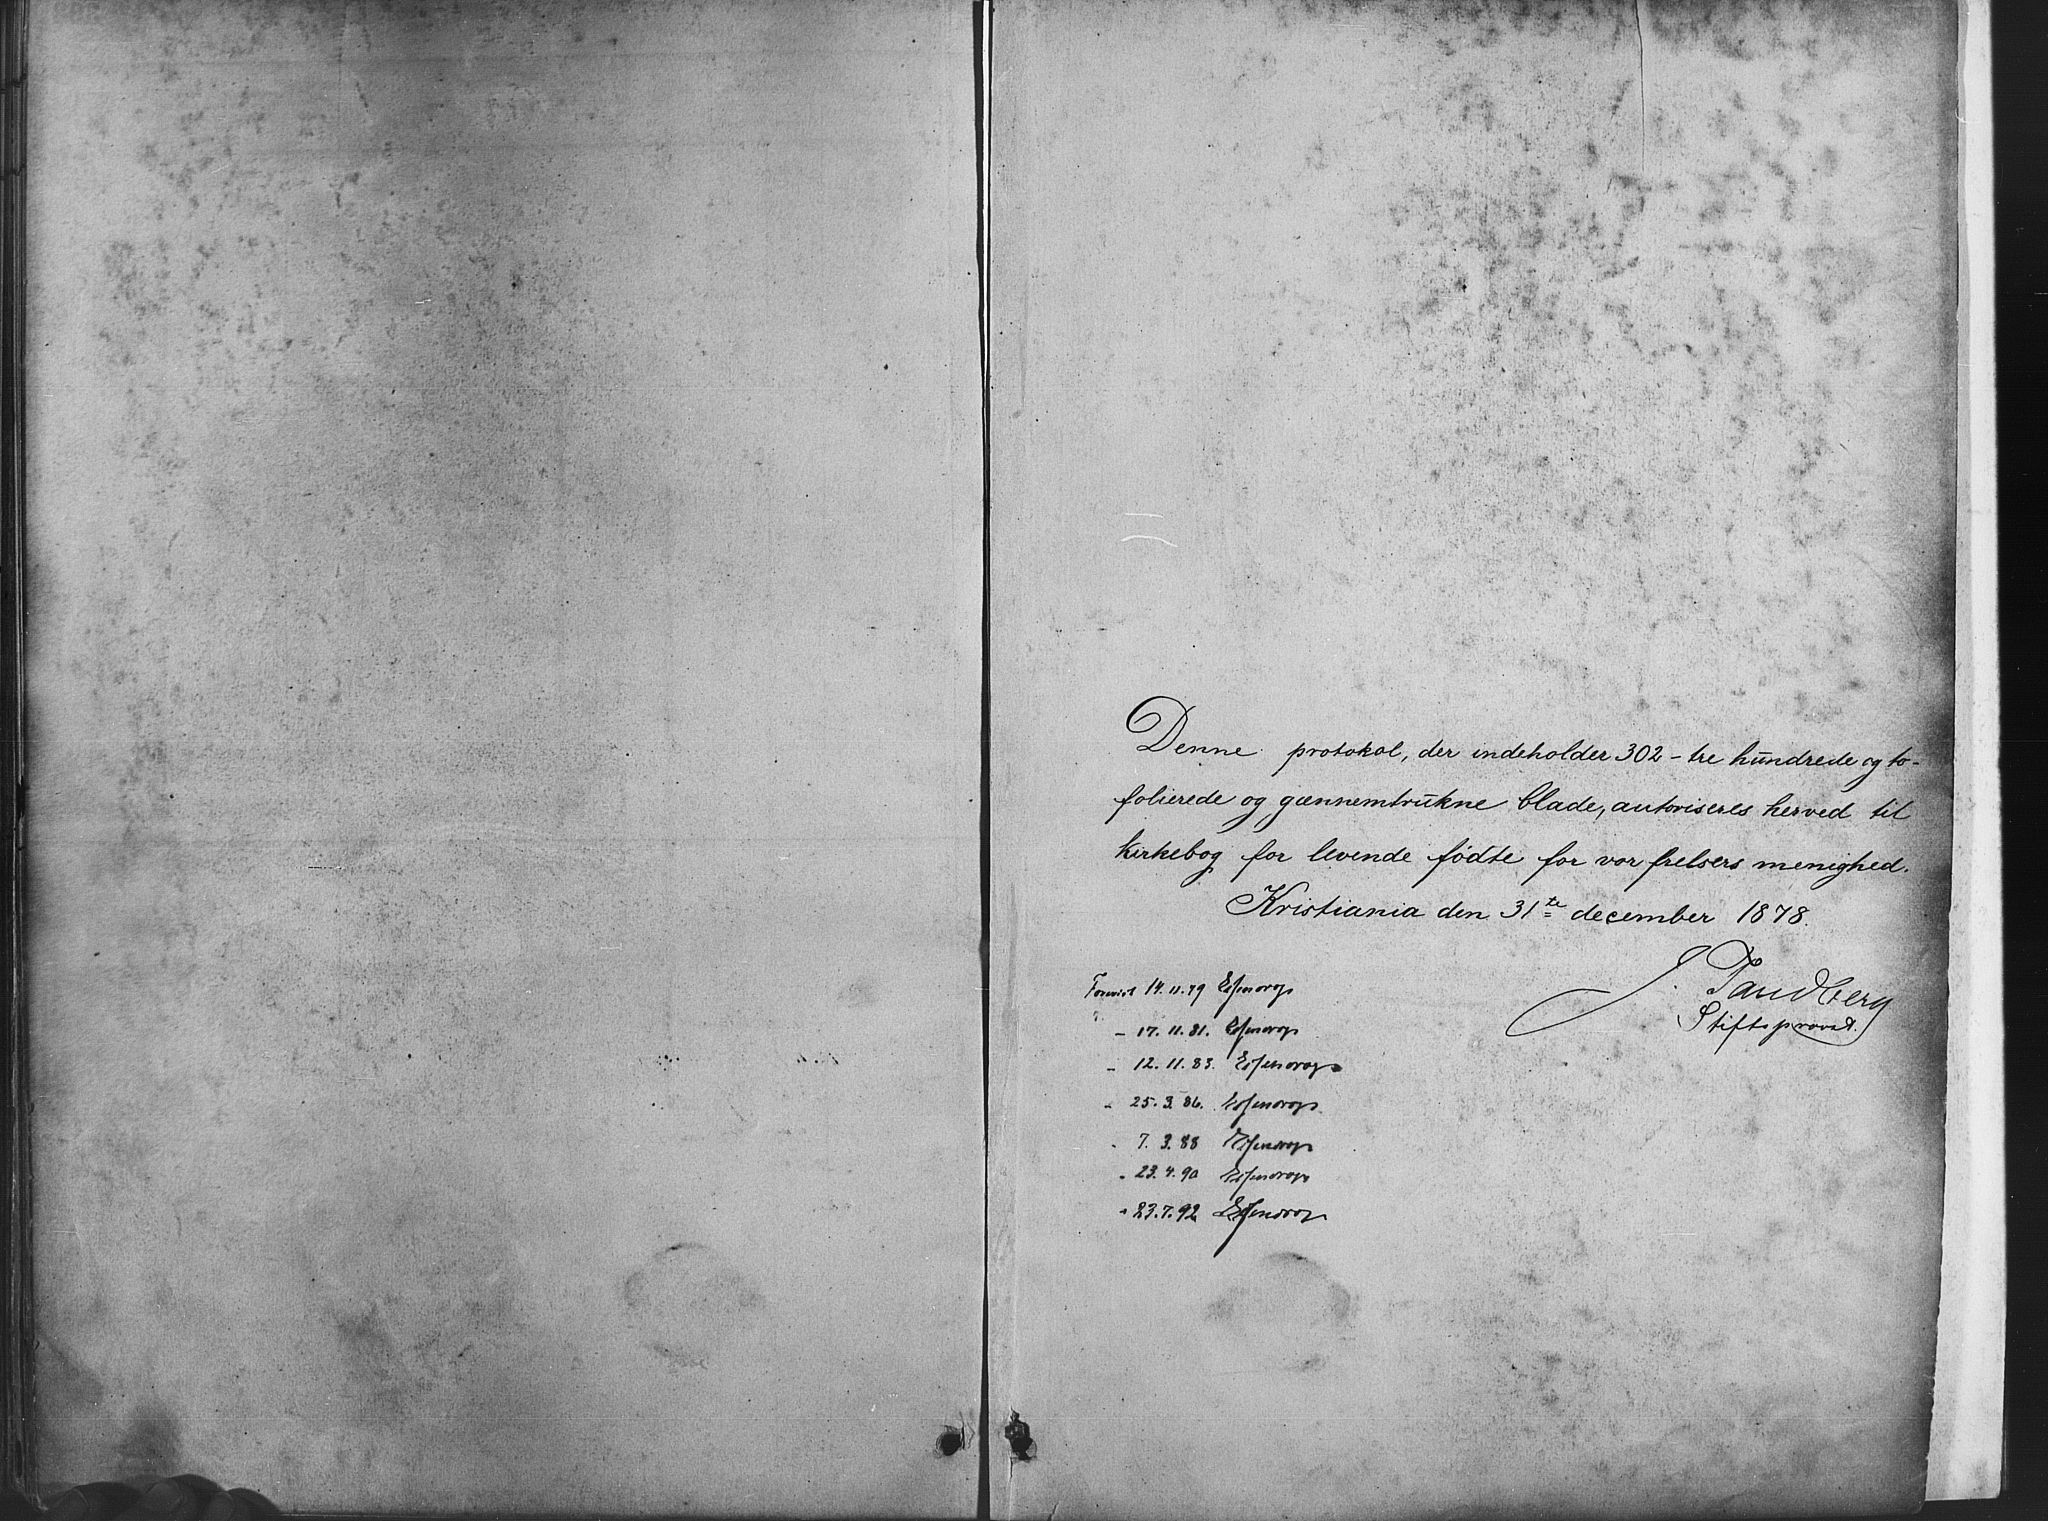 Denne protokol, der indeholder 302 - tre hundrede og to -
folierede og gennemtrukne blade, autoriseres herved til
kirkebog for levende fødte for vor frelsers menighed.
Kristiania den 31te december 1878.
J. Tandberg
Stiftsprovst.
Forevist 14.11.79 Essendrop
- 17.11.81. Essendrop
- 12.11.83. Essendrop
- 25.3.86. Essendrop
- 7.3.88 Essendrop
- 23.4.90 Essendrop
- 23.7.92 Essendrop